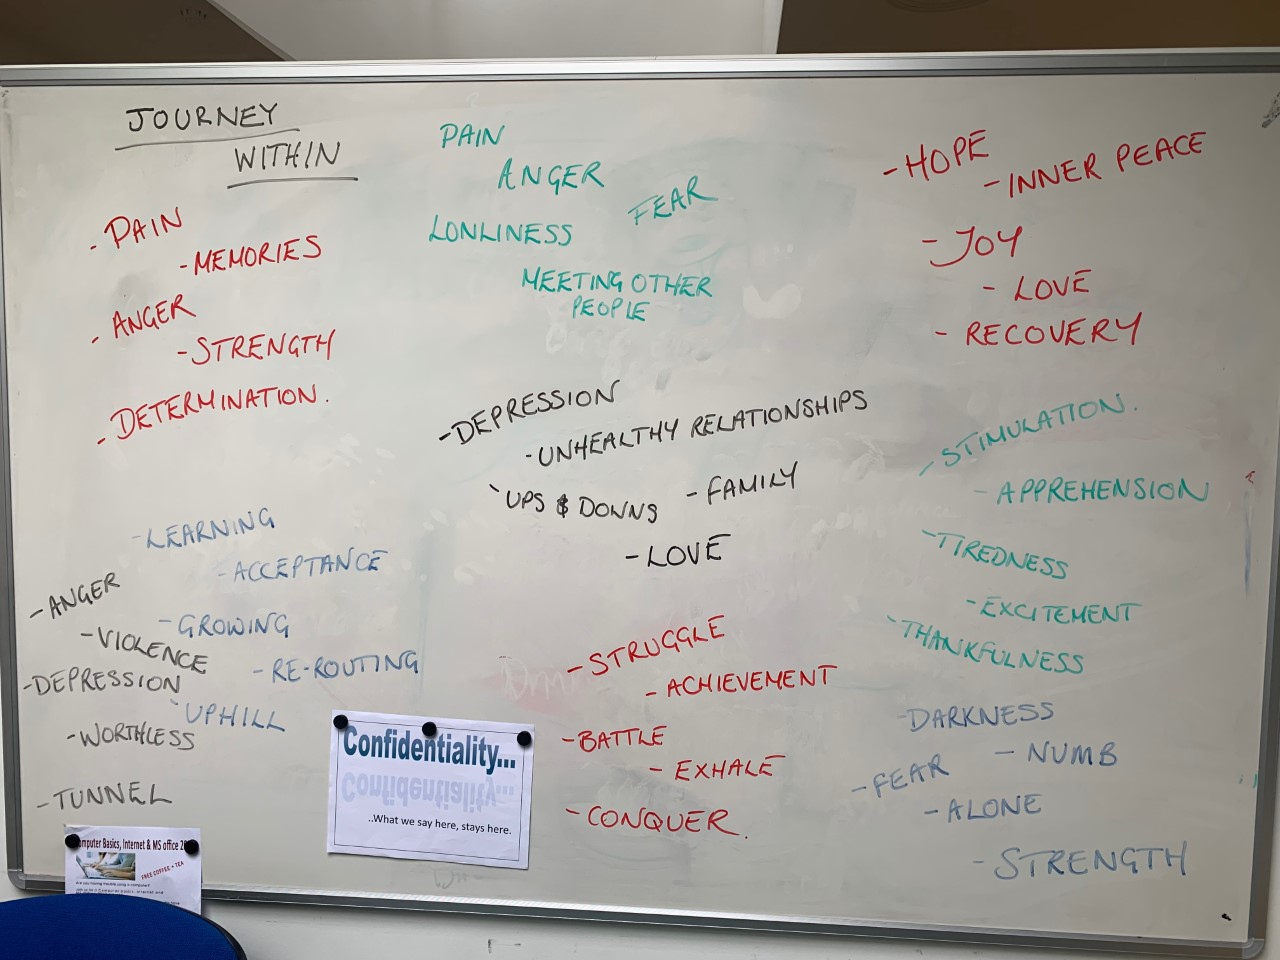 JOURNEY
WITHIN
- PAIN
- MEMORIES
- ANGER
- STRENGTH
- DETERMINATION.
PAIN
ANGER
FEAR
LONLINESS
MEETING OTHER
PEOPLE
- HOPE
- INNER PEACE
- JOY
- LOVE
- RECOVERY
- DEPRESSION
- UNHEALTHY RELATIONSHIPS
- UPS & DOWNS
- FAMILY
- LOVE
- STIMULATION.
- APPREHENSION
- TIREDNESS
- EXCITEMENT
- THANKFULNESS
- LEARNING
- ACCEPTANCE
- GROWING
- RE-ROUTING
- UPHILL
- ANGER
- VIOLENCE
- DEPRESSION
- WORTHLESS
- TUNNEL
- STRUGGLE
- ACHIEVEMENT
- BATTLE
- EXHALE
- CONQUER.
- DARKNESS
- NUMB
- FEAR
- ALONE
- STRENGTH
Confidentiality...
Confidentiality...
..What we say here, stays here.
mputer Basics, Internet & MS office 2
FREE COFFEE + TEA